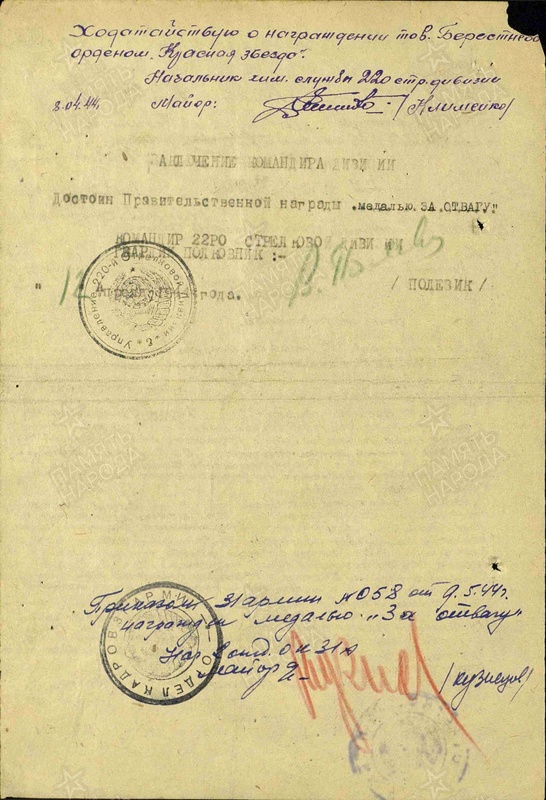 Ходатайствую о награждении тов. Берестнева
орденом „Красная звезда".
Начальник хим. службы 220 стр. дивизии
8.04.44. Майор: /Клименко/
ЗАКЛЮЧЕНИЕ КОМАНДИРА ДИВИЗИИ
Достоин Правительственной награды „медалью ЗА ОТВАГУ"
КОМАНДИР 22РО СТРЕЛКОВОЙ ДИВИЗИИ
ГВАРДИИ ПОЛКОВНИК :-
" 12 апреля года. / ПОЛЕВИК /
Управление 220-й Стрелковой дивизии
ПАМЯТЬ НАРОДА
Приказом 31 армии №058 от 9.5.44г.
награжден медалью „За отвагу"
Нач. отд. ОК 31А
майор /Кузнецов/
ОТДЕЛ КАДРОВ АРМИИ